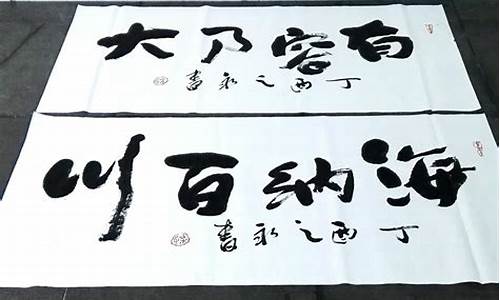 有容乃大
丁酉之永書
海纳百川
丁酉之永書